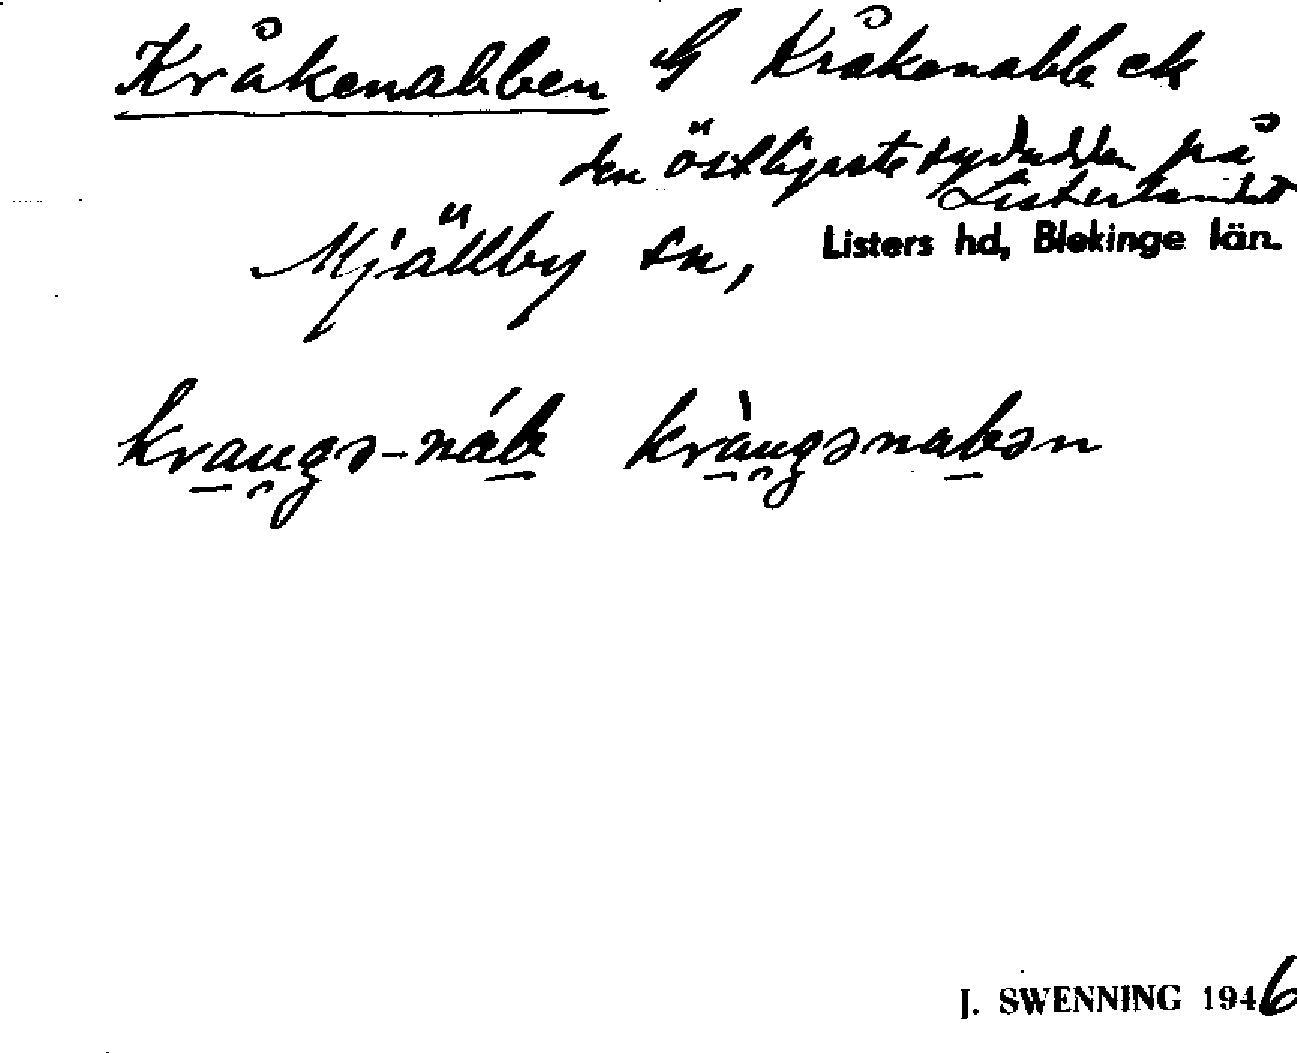 Kråkenabben G Kråkenabb ek
den östligaste sydudden på
Listerlandet
Mjällby sn, Listers hd, Blekinge län.
kraugə-náb kràugənabən
J. SWENNING 1946